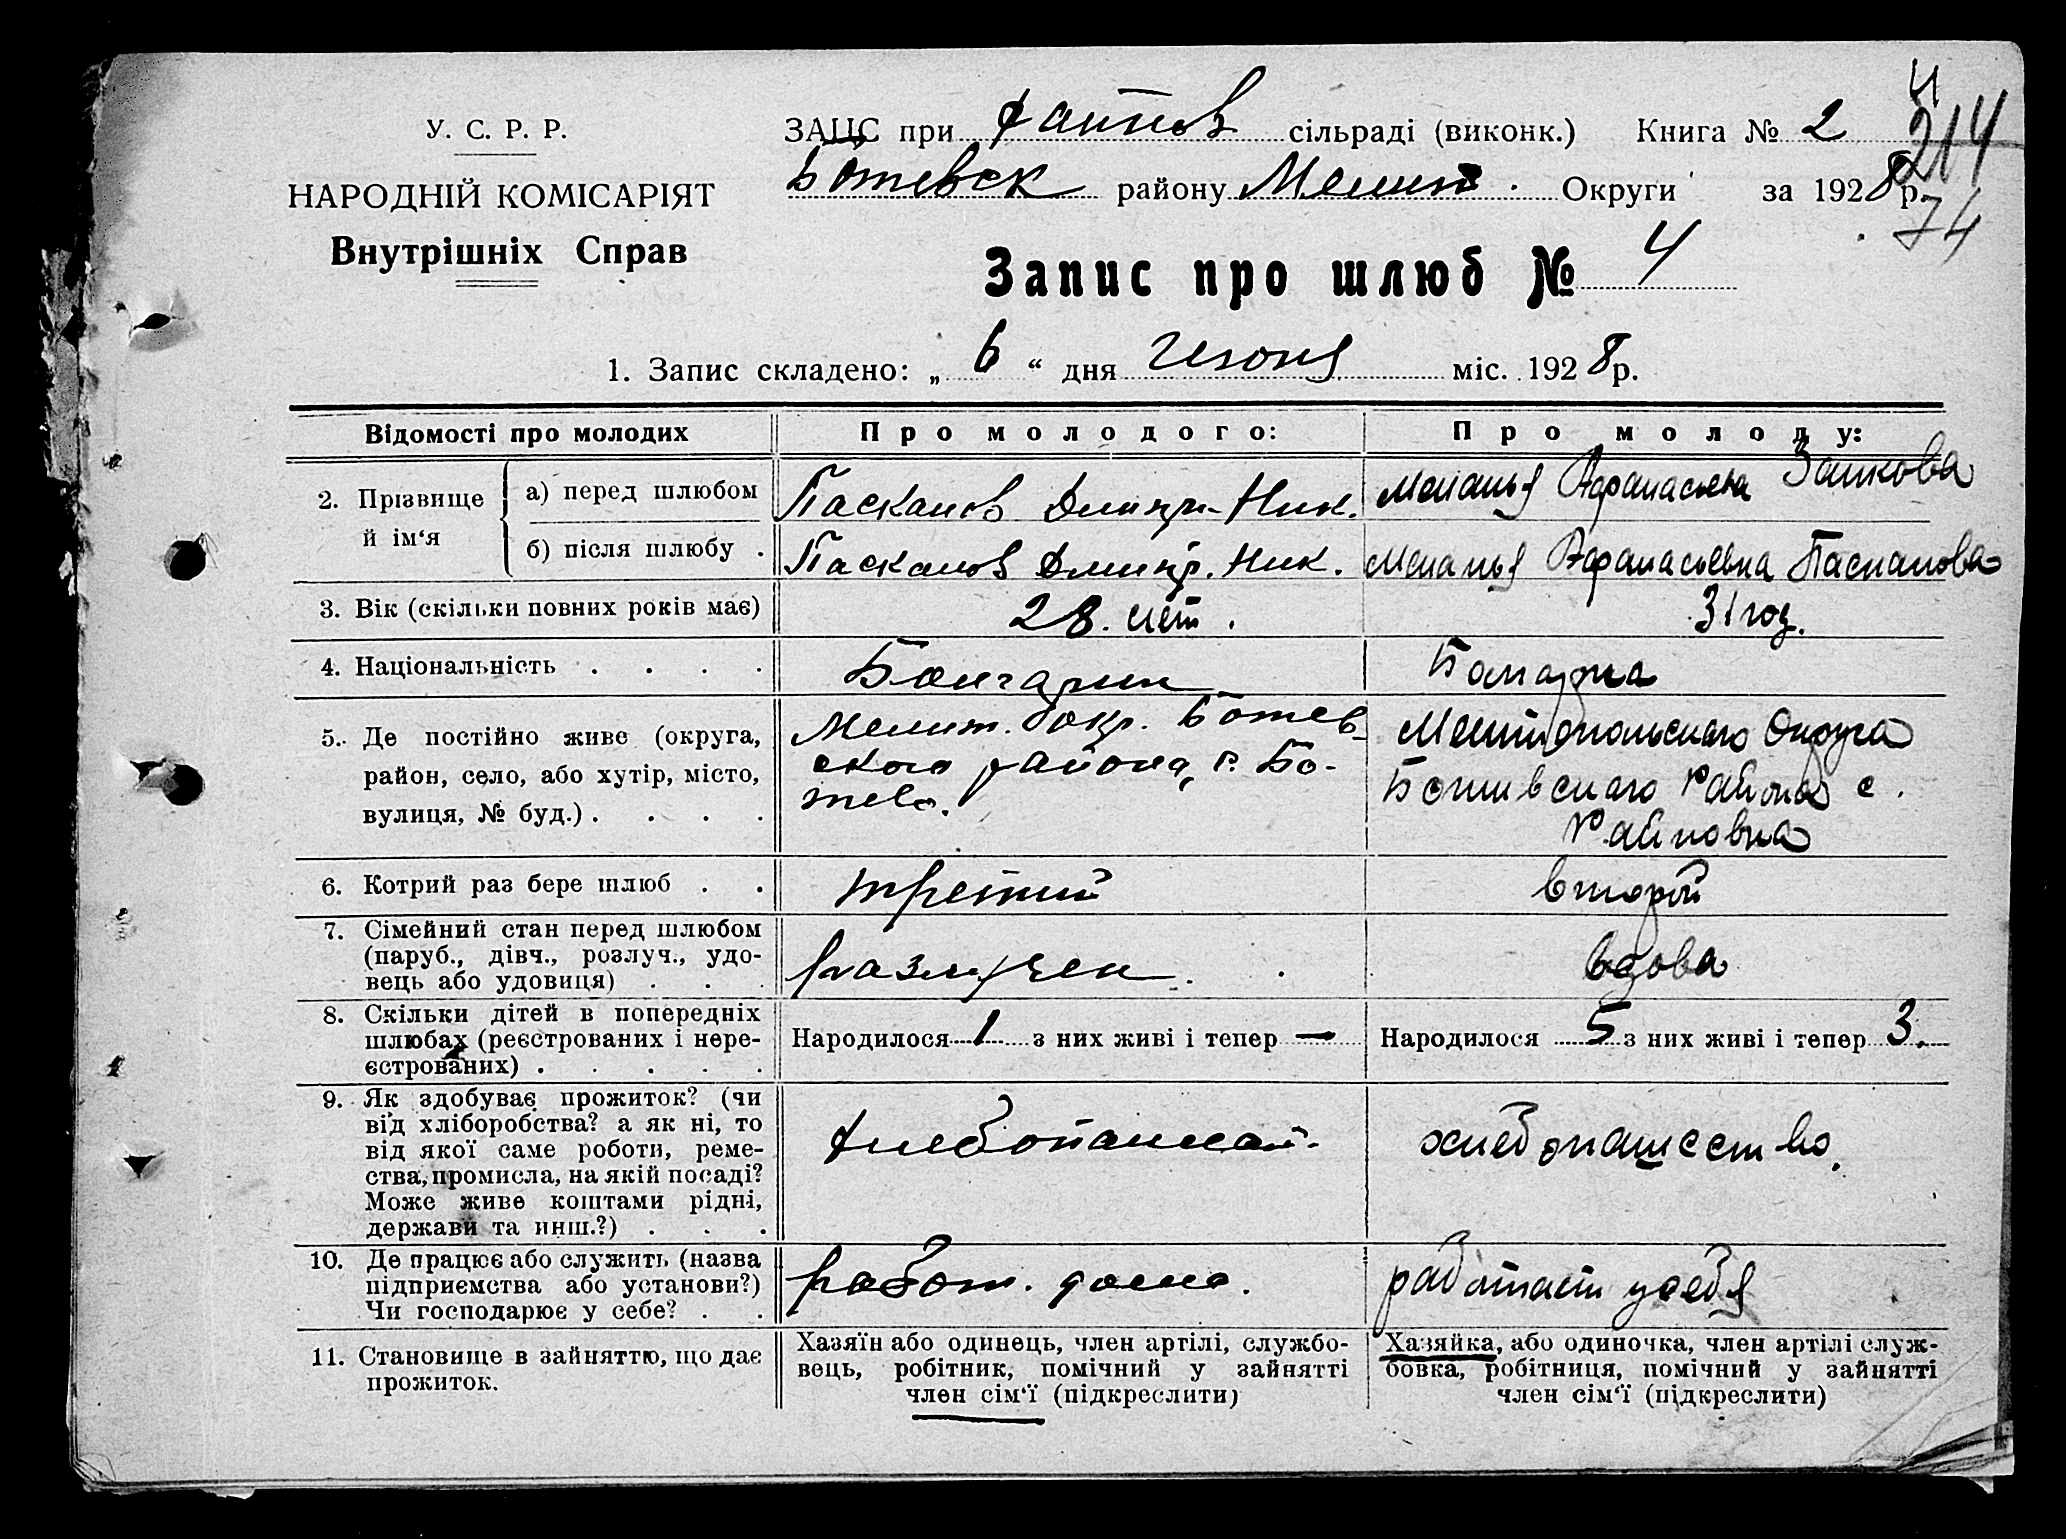 У. С. Р. Р.
НАРОДНІЙ КОМІСАРІЯТ
Внутрішніх Справ
ЗАЦС при Райнов сільраді (виконк.) Книга № 2
41
214
74
Ботевск району Мелит. Округи за 1928 р.
Запис про шлюб № 4
1. Запис складено: „ 6 “ дня Июня міс. 1928 р.
Відомості про молодих
Про молодого:
Про молоду:
2. Прізвище й ім‘я
а) перед шлюбом
Пасканов Дмитр. Ник.
Меланья Афанасьевна Заикова
б) після шлюбу .
Пасканов Дмитр. Ник.
Меланья Афанасьевна Пасканова
3. Вік (скільки повних років має)
28. лет.
31 год.
4. Національність . . . .
Болгарин
Болгарка
5. Де постійно живе (округа,
район, село, або хутір, місто,
вулиця, № буд.) . . . .
Мелит. окр. Ботев-
ского района, с. Бо-
тево.
Мелитопольского Округа
Ботивского Района с.
Райновка
6. Котрий раз бере шлюб . .
третий
второй
7. Сімейний стан перед шлюбом
(паруб., дівч., розлуч., удо-
вець або удовиця) . . .
разлучен.
вдова
8. Скільки дітей в попередніх
шлюбах (реєстрованих і нере-
єстрованих) . . . . .
Народилося 1 з них живі і тепер —
Народилося 5 з них живі і тепер 3.
9. Як здобуває прожиток? (чи
від хліборобства? а як ні, то
від якої саме роботи, реме-
ства, промисла, на якій посаді?
Може живе коштами рідні,
держави та инш.?) . . .
хлебопашест.
хлебопашество.
10. Де працює або служить (назва
підприємства або установи?)
Чи господарює у себе? . .
работ. дома.
работает у себя
11. Становище в зайняттю, що дає
прожиток.
Хазяїн або одинець, член артілі, службо-
вець, робітник, помічний у зайнятті
член сім‘ї (підкреслити)
Хазяйка, або одиночка, член артілі служ-
бовка, робітниця, помічний у зайнятті
член сім‘ї (підкреслити)